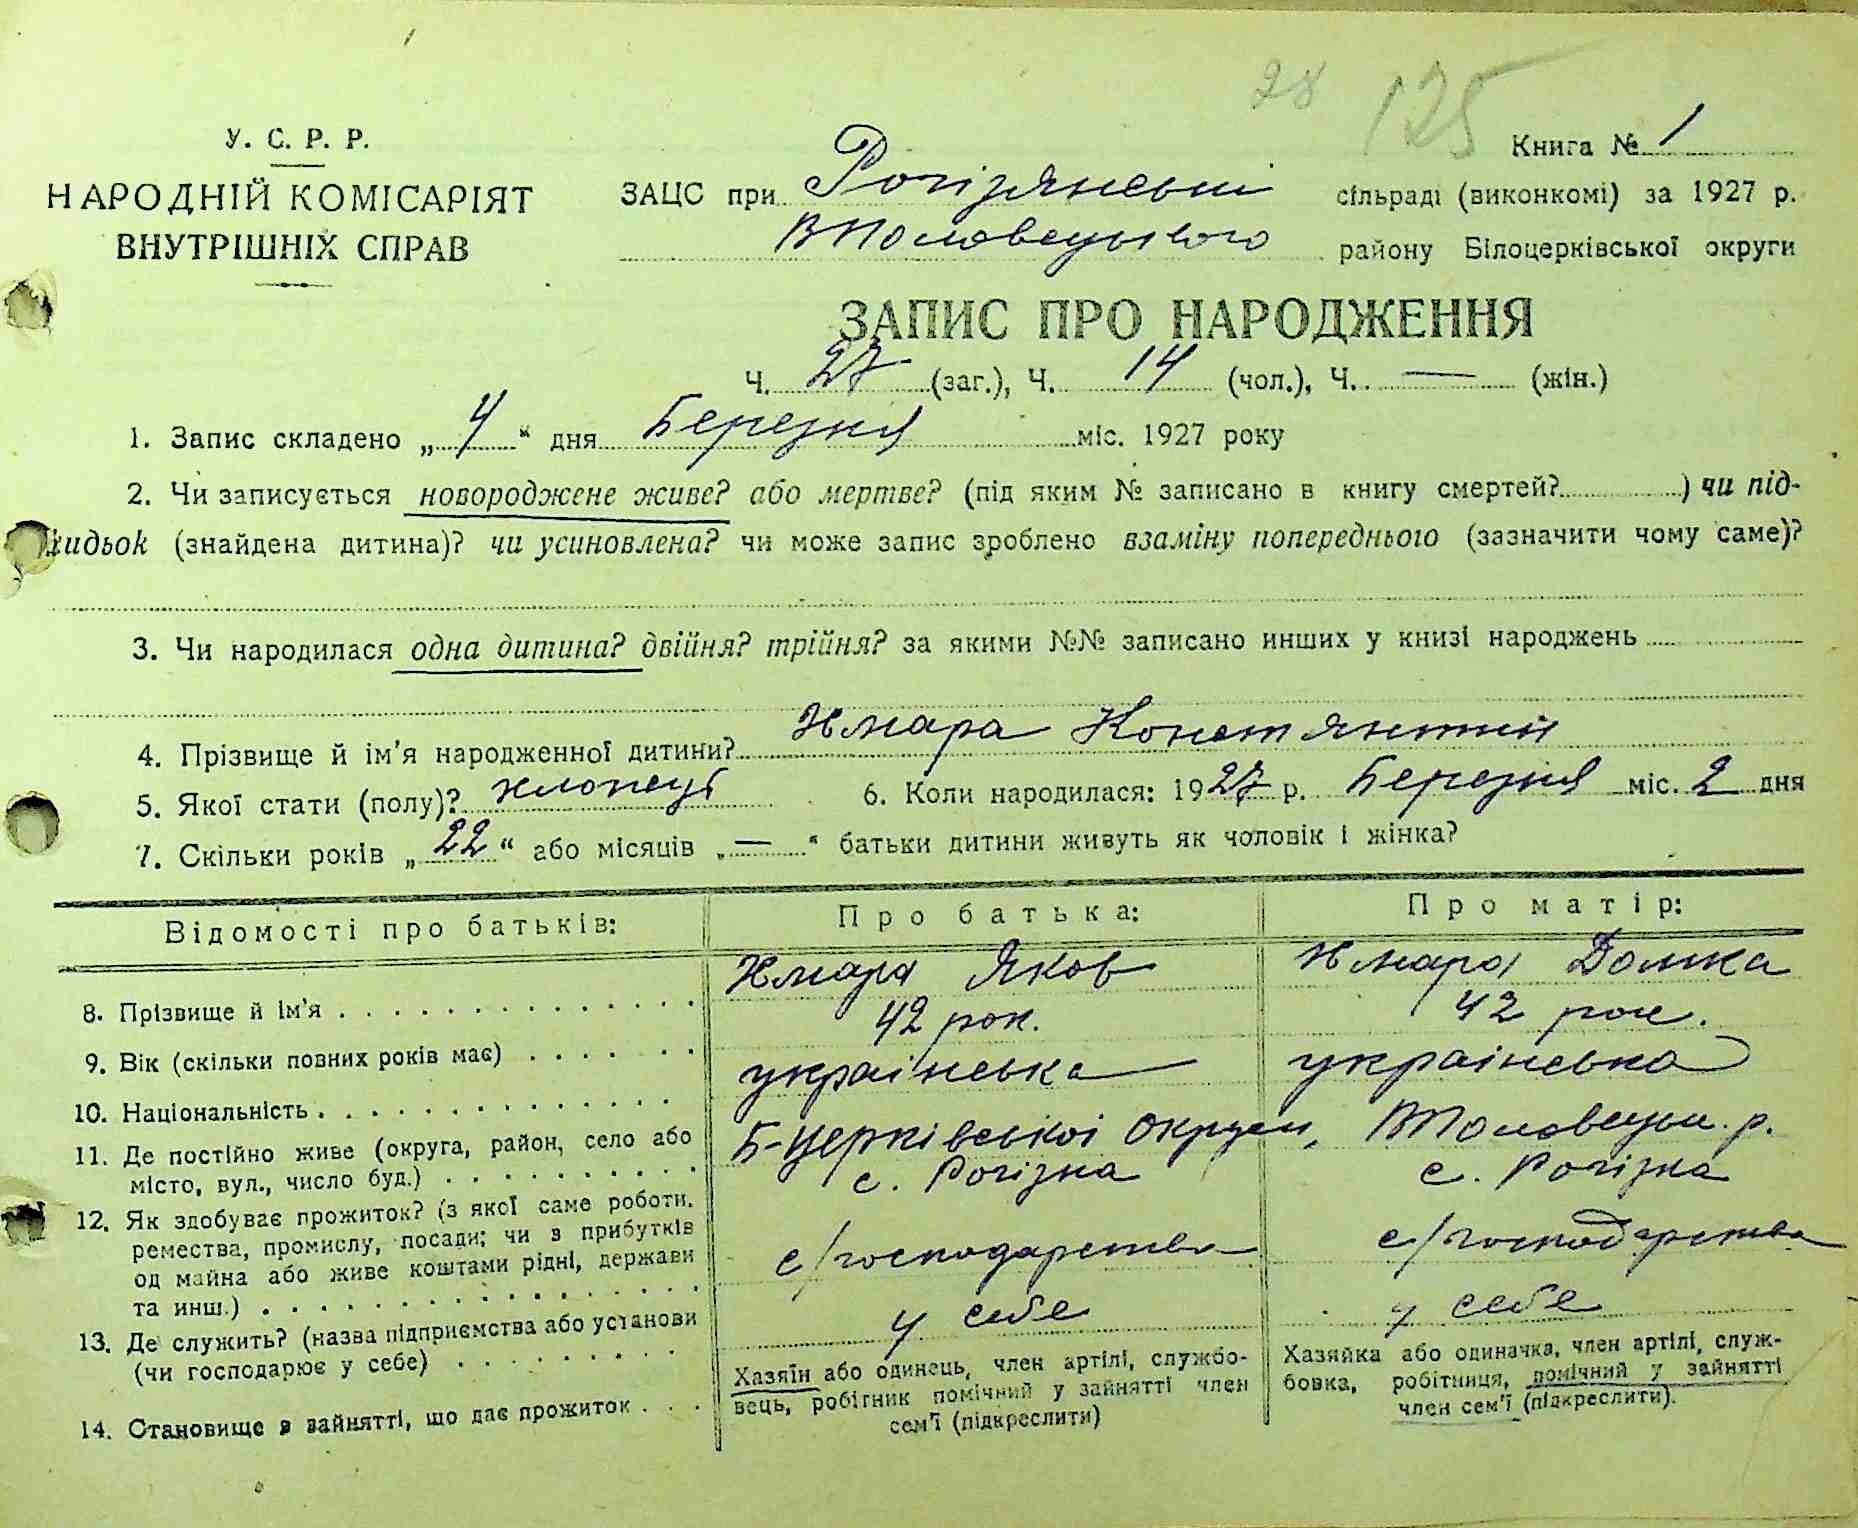 28 125
У. С. Р. Р.
НАРОДНІЙ КОМІСАРІЯТ
ВНУТРІШНІХ СПРАВ
Книга № 1
ЗАЦС при Рогізянські сільраді (виконкомі) за 1927 р.
ВПоловецького району Білоцерківської округи
ЗАПИС ПРО НАРОДЖЕННЯ
Ч. 27 (заг.), Ч. 14 (чол.), Ч. — (жін.)
1. Запис складено „ 4 “ дня Березня міс. 1927 року
2. Чи записується новороджене живе? або мертве? (під яким № записано в книгу смертей? ) чи під-
кидьок (знайдена дитина)? чи усиновлена? чи може запис зроблено взаміну попереднього (зазначити чому саме)?
3. Чи народилася одна дитина? двійня? трійня? за якими №№ записано инших у книзі народжень
4. Прізвище й ім’я народженної дитини? Хмара Констянтин
5. Якої стати (полу)? хлопець 6. Коли народилася: 1927 р. Березня міс. 2 дня
7. Скільки років „ 22 “ або місяців „ — “ батьки дитини живуть як чоловік і жінка?
Відомості про батьків: Про батька: Про матір:
8. Прізвище й ім’я Хмара Яков Хмара Домка
9. Вік (скільки повних років має) 42 рок. 42 рок.
10. Національність українська українська
11. Де постійно живе (округа, район, село або Б-Церківської Округи, ВПоловецьк. р.
місто, вул., число буд.) с. Рогізна с. Рогізна
12. Як здобуває прожиток? (з якої саме роботи,
ремества, промислу, посади; чи з прибутків с/господарство с/господарство
од майна або живе коштами рідні, держави
та инш.)
13. Де служить? (назва підприємства або установи у себе у себе
(чи господарює у себе)
14. Становище в зайнятті, що дає прожиток
Хазяїн або одинець, член артілі, службо-
вець, робітник помічний у зайнятті член
сем’ї (підкреслити)
Хазяйка або одиначка, член артілі, служ-
бовка, робітниця, помічний у зайнятті
член сем’ї (підкреслити).